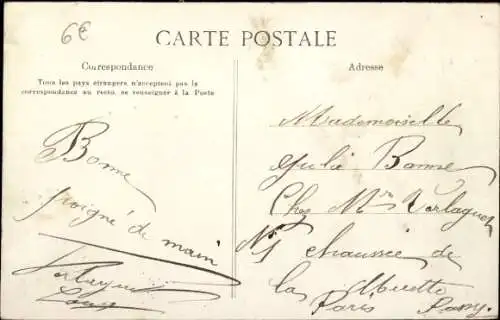 6€
CARTE POSTALE
Correspondance
Tous les pays étrangers n'acceptent pas la
correspondance au recto, se renseigner à la Poste
Bonne
poigné de main
Adresse
Mademoiselle
Julie Banne
Chez Mr Verlaguet
N° 1 chaussée de
la Muette
Paris Passy